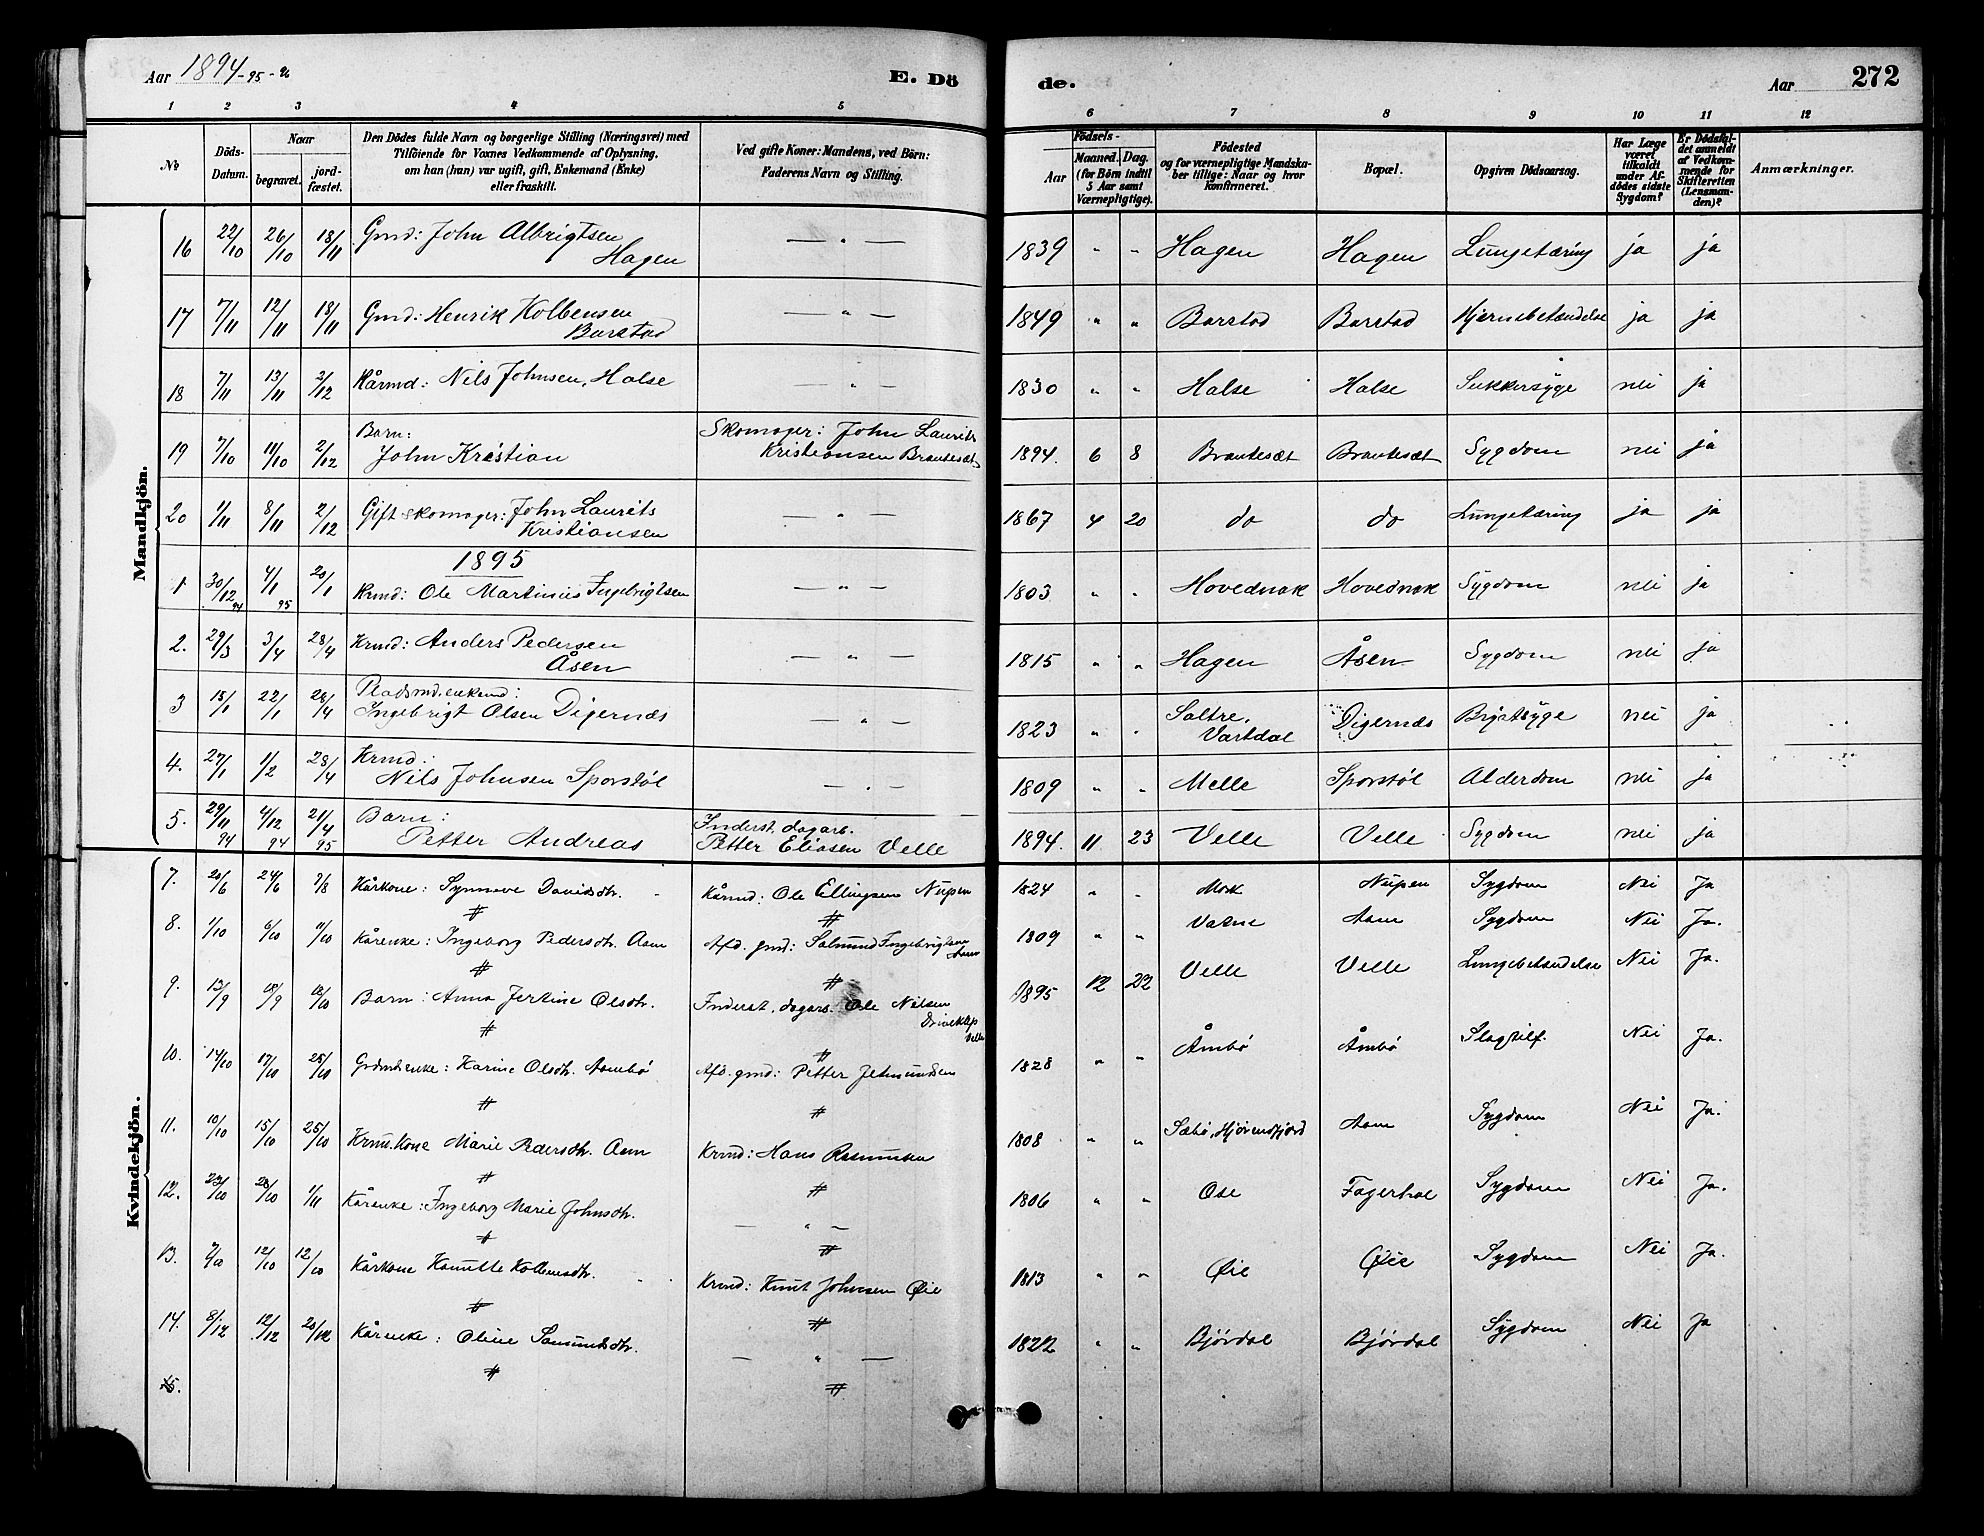 Aar 1894-95-96
E. Dö
de.
Aar
272
1 2 3 4 5 6 7 8 9 10 11 12
No
Döds-
Datum.
Naar
begravet.
jord-
fæstet.
Den Dödes fulde Navn og borgerlige Stilling (Næringsvei) med
Tilföiende for Voxnes Vedkommende af Oplysning,
om han (hun) var ugift, gift, Enkemand (Enke)
eller fraskilt.
Ved gifte Koner: Mandens, ved Börn:
Faderens Navn og Stilling.
Födsels-
Aar
Maaned. Dag.
(for Börn indtil
5 Aar samt
Værnepligtige).
Födested
og for værnepligtige Mandska-
ber tillige: Naar og hvor
konfirmeret.
Bopæl.
Opgiven Dödsaarsag.
Har Læge
været
tilkaldt
under Af-
dödes sidste
Sygdom?
Er Dödsfal-
det anmeldt
af Vedkom-
mende for
Skifteretten
(Lensman-
den)?
Anmærkninger.
Mandkjön.
16 22/10 26/10 18/11 Gmd: John Albrigtsen
Hagen
— " — 1839 " " Hagen Hagen Lungetæring ja ja
17 7/11 12/11 18/11 Gmd: Henrik Kolbensen
Barstad
— " — 1849 " " Barstad Barstad Hjernebetændelse ja ja
18 7/11 13/11 2/12 Kårmd: Nils Johnsen, Halse — " — 1830 " " Halse Halse Sukkersyge nei ja
19 7/10 11/10 2/12 Barn:
John Kristian
Skomager: John Laurits
Kristiansen Brautesæt
1894. 6 8 Brautesæt Brautesæt Sygdom nei ja
20 1/11 8/11 2/12 Gift skomager: John Laurits
Kristiansen
— " — 1867 4 20 do do Lungetæring ja ja
1895
1 30/12 94 4/1 95 20/1 Krmd: Ole Martinus Ingebrigtsen — " — 1803 " " Hovednak Hovednak Sygdom nei ja
2. 29/3 3/4 28/4 Krmd: Anders Pedersen
Åsen
— " — 1815 " " Hagen Åsen Sygdom nei ja
3 15/1 22/1 28/4 Pladsmd. enkemd:
Ingebrigt Olsen Digernæs
— " — 1823 " " Saltre,
Vartdal
Digernæs Brystsyge nei ja
4. 27/1 1/2 28/4 Krmd:
Nils Johnsen Sporstøl
— " — 1809 " " Melle Sporstøl Alderdom nei ja
5. 29/11 94 4/12 94 21/4 95 Barn:
Petter Andreas
Inderst, dagarb.
Petter Eliasen Velle
1894. 11 23 Velle Velle Sygdom nei ja
Kvindekjön.
7. 20/6 24/6 7/8 Kårkone: Synneve Davidsdtr. Kårmd: Ole Ellingsen Nupen 1824 " " Mork Nupen Sygdom Nei Ja
8. 1/10 6/10 11/10 Kårenke: Ingeborg Pedersdtr. Aam Afd. gmd: Salmund Ingebrigtsen
Aam
1809 " " Vatne Aam Sygdom Nei Ja.
9. 13/9 18/9 12/10 Barn: Anna Jertine Olsdtr. Inderst, dagarb. Ole Nilsen
Driveklep
Velle
1895 12 22 Velle Velle Lungebetændelse Nei Ja.
10. 14/10 17/10 25/10 Grdmdsenke: Karine Olsdtr. Aambø Afd. gmd: Petter Jetmundsen 1828 " " Åmbø Åmbø Slagtilf. Nei Ja.
11. 10/10 15/10 25/10 Krmd. Kone Marie Pedersdtr. Aam Krmd: Hans Rasmussen 1808 " " Sæbø, Hjörendfjord Aam Sygdom Nei Ja.
12. 23/10 28/10 1/11 Kårenke: Ingeborg Marie Johnsdtr. — " — 1806 " " Ose Fagerhol Sygdom Nei Ja.
13. 7/10 12/10 12/10 Kårkone Kanutte Kolbensdtr. Krmd: Knut Johnsen Øie 1813 " " Øie Øie Sygdom Nei Ja.
14. 8/12 12/12 20/12 Kårenke: Oline Samundsdtr. — " — 1822 " " Björdal Björdal Sygdom Nei Ja
15.